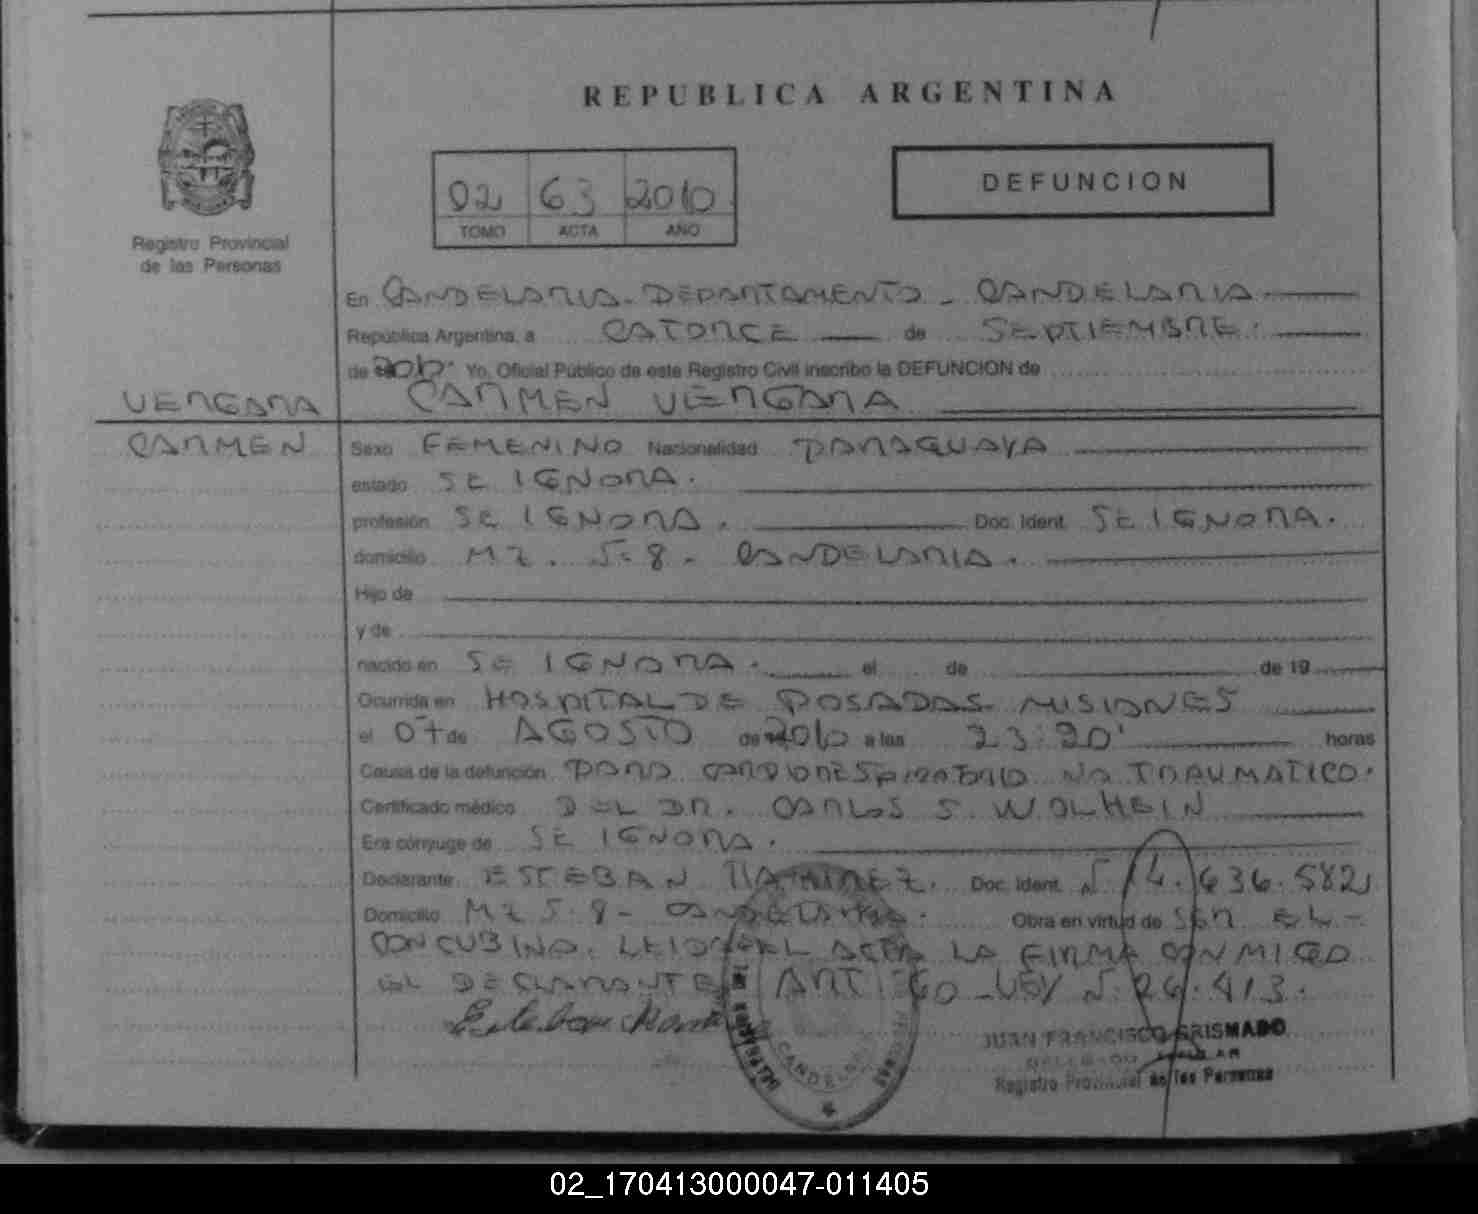 REPUBLICA ARGENTINA
02 63 2010
TOMO ACTA AÑO
DEFUNCION
Registro Provincial
de las Personas
En CANDELARIA - DEPARTAMENTO - CANDELARIA
República Argentina, a CATORCE de SEPTIEMBRE
de 2010 Yo, Oficial Público de este Registro Civil inscribo la DEFUNCION de
VERGARA CARMEN VERGARA
CARMEN Sexo FEMENINO Nacionalidad PARAGUAYA
estado SE IGNORA.
profesión SE IGNORA. Doc. Ident. SE IGNORA.
domicilio MZ. 5-8 - CANDELARIA.
Hijo de
y de
nacido en SE IGNORA. el de de 19
Ocurrida en HOSPITAL DE POSADAS - MISIONES
el 07 de AGOSTO de 2010 a las 23:20' horas
Causa de la defunción PARO CARDIORESPIRATORIO NO TRAUMATICO.
Certificado médico DEL DR. CARLOS S. WOLHEIN
Era cónyuge de SE IGNORA.
Declarante ESTEBAN Doc. Ident. Nº 14.636.582
Domicilio MZ 5-8 - CANDELARIA. Obra en virtud de SER EL-
CONCUBINO. LEIDA EL ACTA LA FIRMA CONMIGO
EL DECLARANTE ART - LEY Nº 26.413.
Esteban
CANDELARIA
JUAN FRANCISCO GRISMADO
Registro Provincial de las Personas
02_170413000047-011405